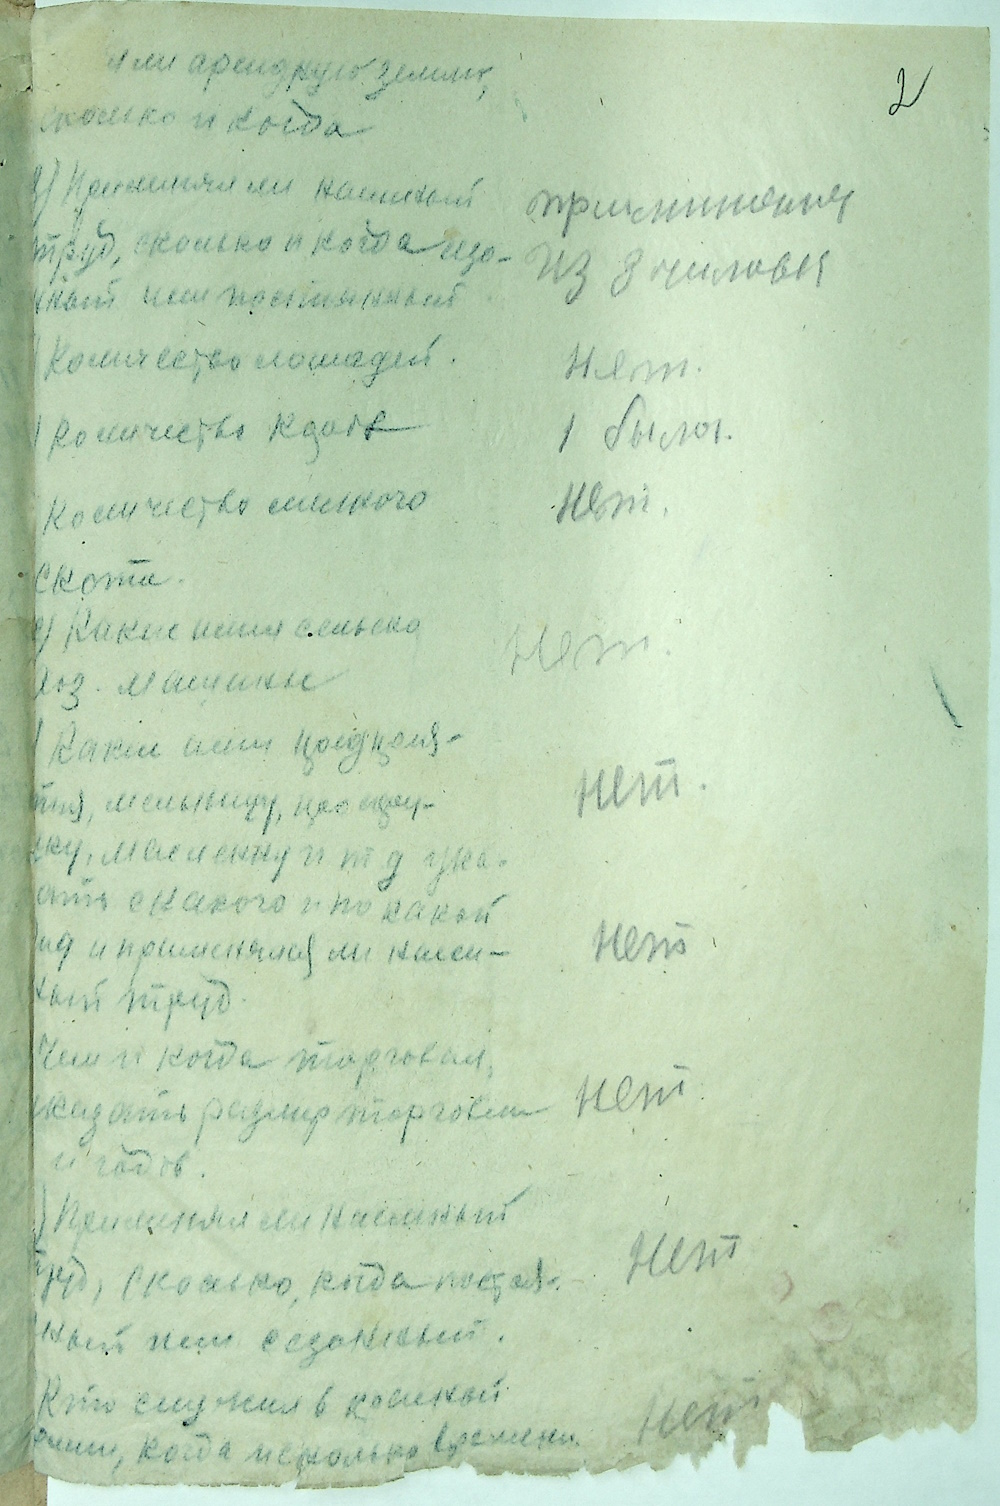 2
или арендную землю,
сколько и когда
в) Применял ли наемный
труд, сколько и когда сезо-
нный или постоянный
применения
из 8 человек
Количество лошадей.
Нет.
Количество кдов
1 была.
Количество мелкого
Нет.
скота.
е) Какие имел сельско
хоз. машины
Нет.
Какие имел
тия, мельницу,
Нет.
ку, маслёнку и т д ука-
ать с какого и по какой
од и применялся ли наем-
Нет
ный труд.
Чем и когда торговал,
казать размер торговли
Нет
и годов.
Применял ли наемный
труд, сколько, когда постоя-
Нет
ный или сезонный.
Кто служил в красной
Нет
рмии, когда и сколько времени.